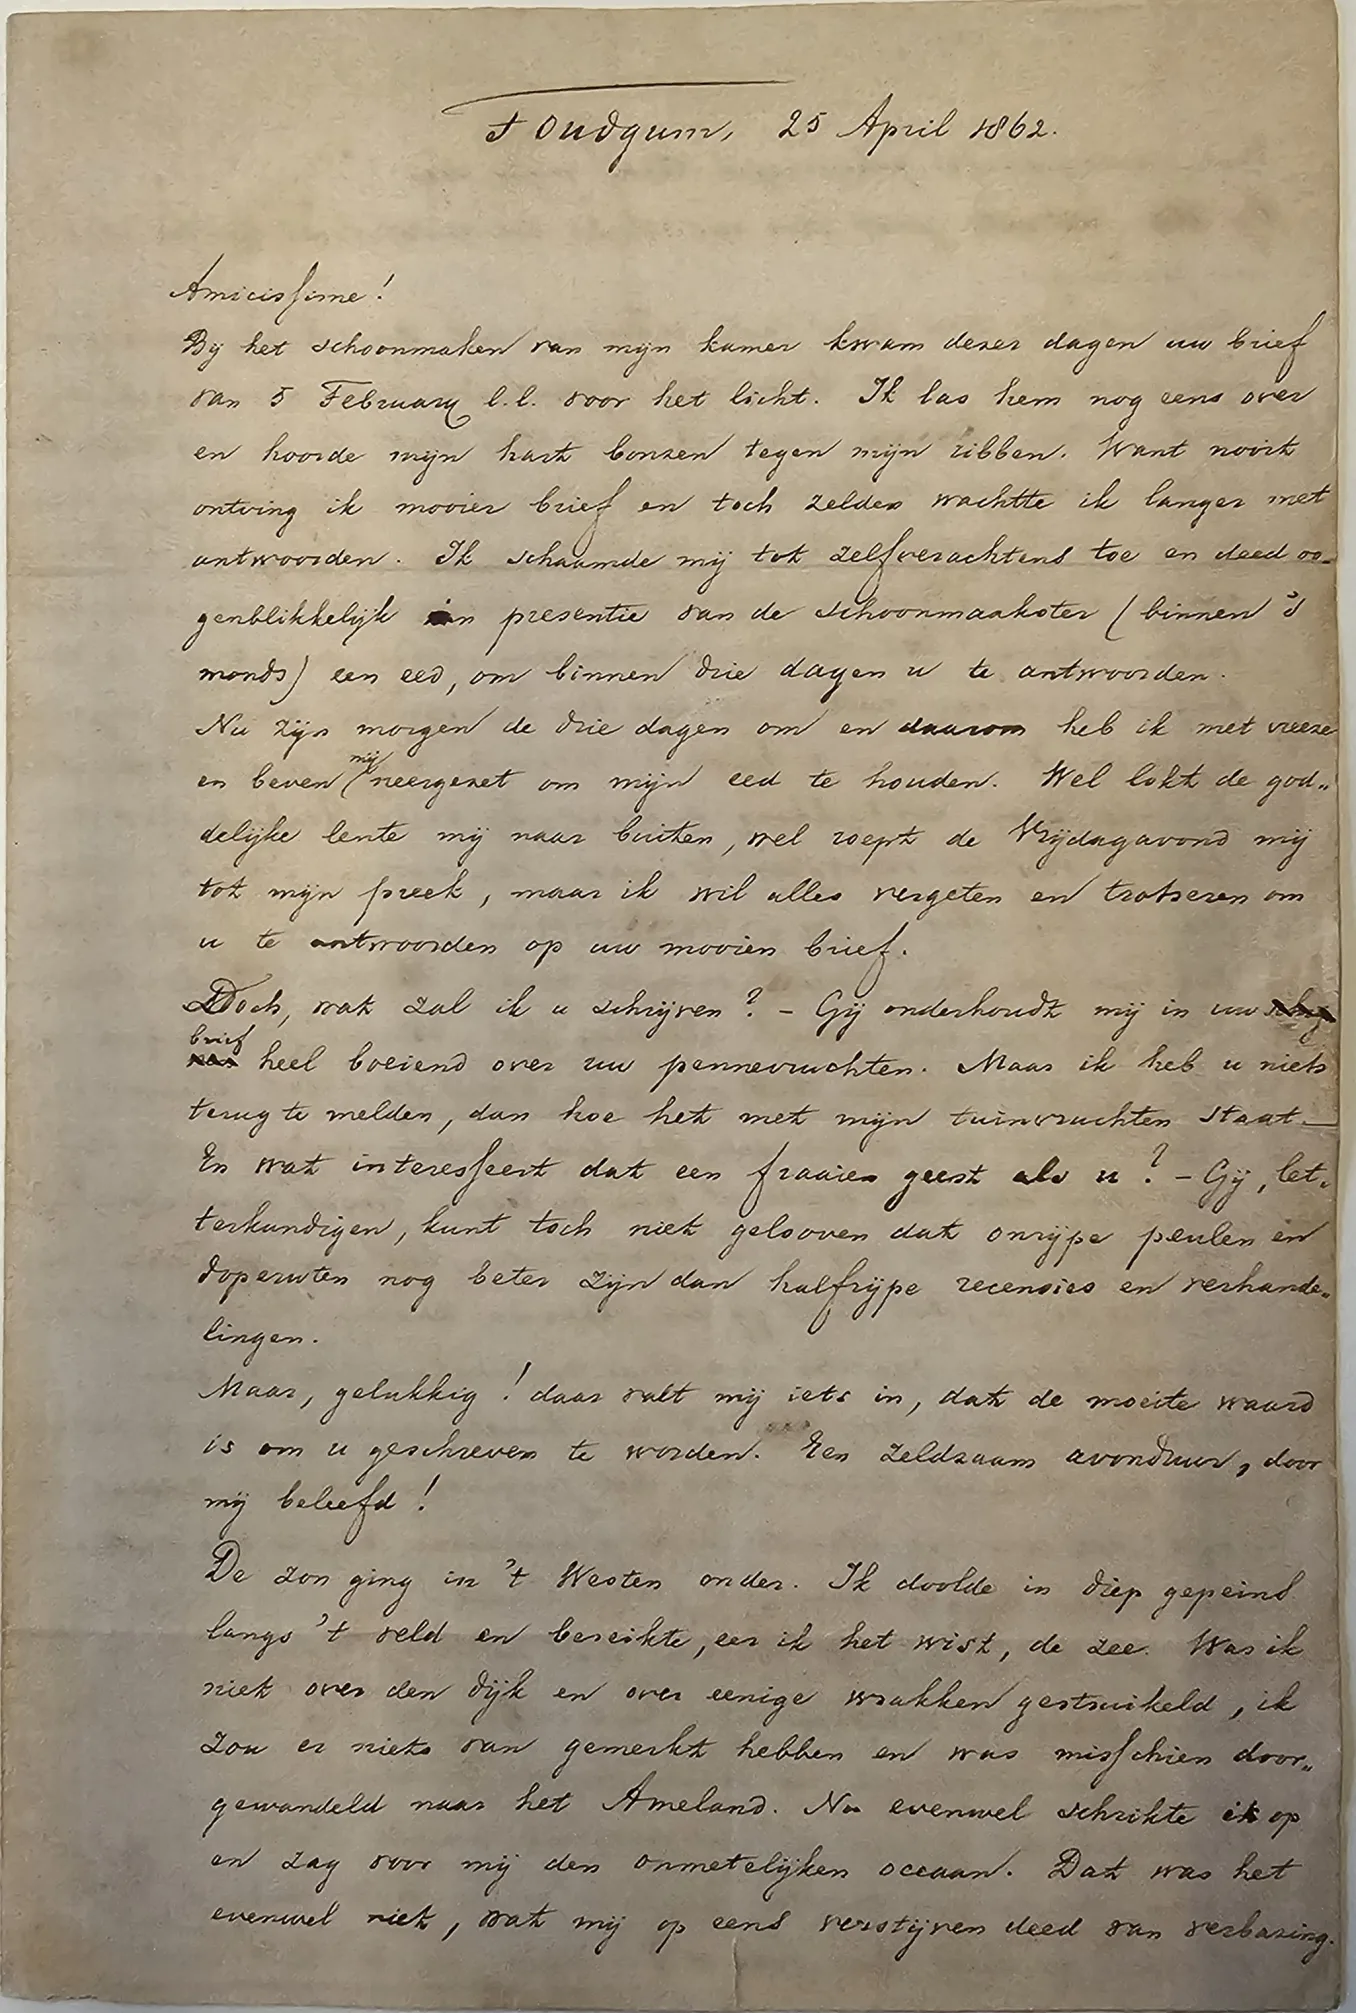 Foudgum, 25 April 1862.
Amicissime!
Bij het schoonmaken van mijn kamer kwam dezer dagen uw brief
van 5 February l.l. voor het licht. Ik las hem nog eens over
en hoorde mijn hart bonzen tegen mijn ribben. Want nooit
ontving ik mooier brief en toch zelden wachtte ik langer met
antwoorden. Ik schaamde mij tot zelfverachtens toe en deed oo-
genblikkelijk in presentie van de schoonmaakster (binnen 's
monds) een eed, om binnen drie dagen u te antwoorden.
Nu zijn morgen de drie dagen om en daarom heb ik met vreeze
en beven mij neergezet om mijn eed te houden. Wel lokt de god-
delijke lente mij naar buiten, wel roept de Vrijdagavond mij
tot mijn preek, maar ik wil alles vergeten en trotseren om
u te antwoorden op uw mooien brief.
Doch, wat zal ik u schrijven? - Gij onderhoudt mij in uw
brief heel boeiend over uw pennevruchten. Maar ik heb u niets
terug te melden, dan hoe het met mijn tuinvruchten staat.
En wat interesseert dat een fraaien geest als u? - Gij, let-
terkundigen, kunt toch niet gelooven dat onrijpe peulen en
doperwten nog beter zijn dan halfrijpe recensies en verhande-
lingen.
Maar, gelukkig! daar valt mij iets in, dat de moeite waard
is om u geschreven te worden. Een zeldzaam avondruur, door
mij beleefd!
De zon ging in 't Westen onder. Ik doolde in diep gepeins
langs 't veld en bereikte, eer ik het wist, de zee. Was ik
niet over den dijk en over eenige wrakken gestruikeld, ik
zou er niets van gemerkt hebben en was misschien door-
gewandeld naar het Ameland. Nu evenwel schrikte ik op
en zag voor mij den onmetelijken oceaan. Dat was het
evenwel niet, wat mij op eens verstijven deed van verbazing.